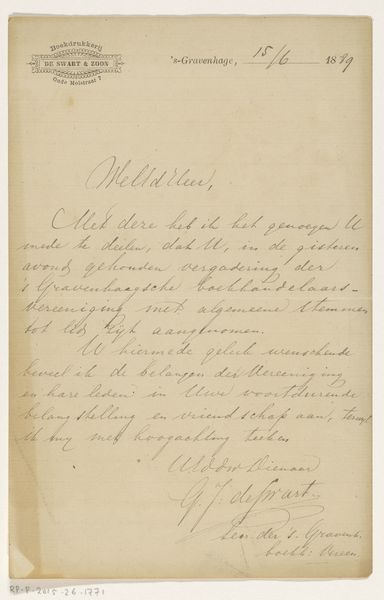 Boekdrukkerij
DE SWART & ZOON
Oude Molstraat 7
's-Gravenhage, 15/6 1889
WelEdHeer,
Met deze heb ik het genoegen U
mede te deelen, dat U, in de gisteren
avond gehouden vergadering der
's Gravenhaagsche boekhandelaars-
vereeniging met algemeene stemmen
tot lid zijt aangenomen.
U hiermede geluk wenschende
beveel ik de belangen der Vereeniging
en hare leden in Uwe voortdurende
belangstelling en vriendschap aan, terwyl
ik my met hoogachting teeken
UEddw Dienaar
G. J. de Swart
Secr. der 's Gravenh.
boekh: Vereen.
RP-P-2015-26-1771